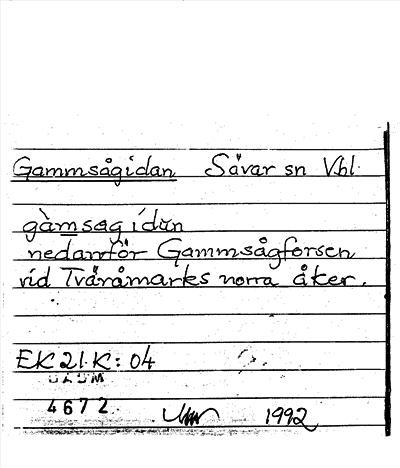 Gammsågidan Sävar sn Vbl.
gàmsag ídan
nedanför Gammsågforsen
vid Tväråmarks norra åker.
EK 21 K: 04
DAUM
4672
1992